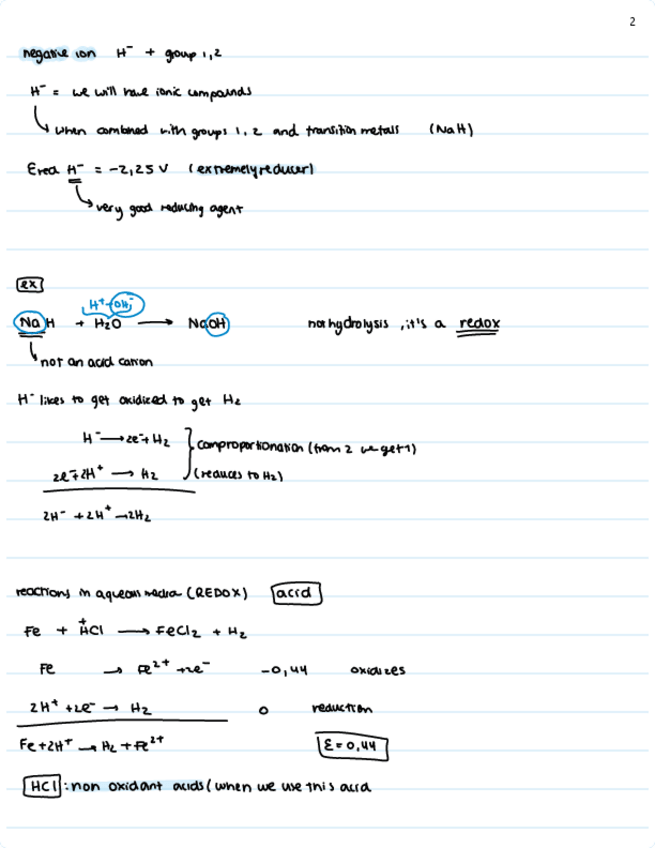 2
negative ion H⁻ + group 1,2
H⁻ = we will have ionic compounds
when combined with groups 1, 2 and transition metals (NaH)
Ered H⁻ = -2,25 V (extremely reducer)
very good reducing agent
ex
H⁺ OH⁻
NaH + H₂O → NaOH not hydrolysis, it's a redox
not an acid cation
H⁻ likes to get oxidized to get H₂
H⁻ → 2e⁻ + H₂
comproportionation (from 2 we get 1)
2e⁻ + 2H⁺ → H₂ (reduces to H₂)
2H⁻ + 2H⁺ → 2H₂
reactions in aqueous media (REDOX) acid
Fe + HCl → FeCl₂ + H₂
+
Fe → Fe²⁺ + 2e⁻ -0,44 oxidizes
2H⁺ + 2e⁻ → H₂ 0 reduction
Fe + 2H⁺ → H₂ + Fe²⁺ ε = 0,44
HCl : non oxidant acids (when we use this acid